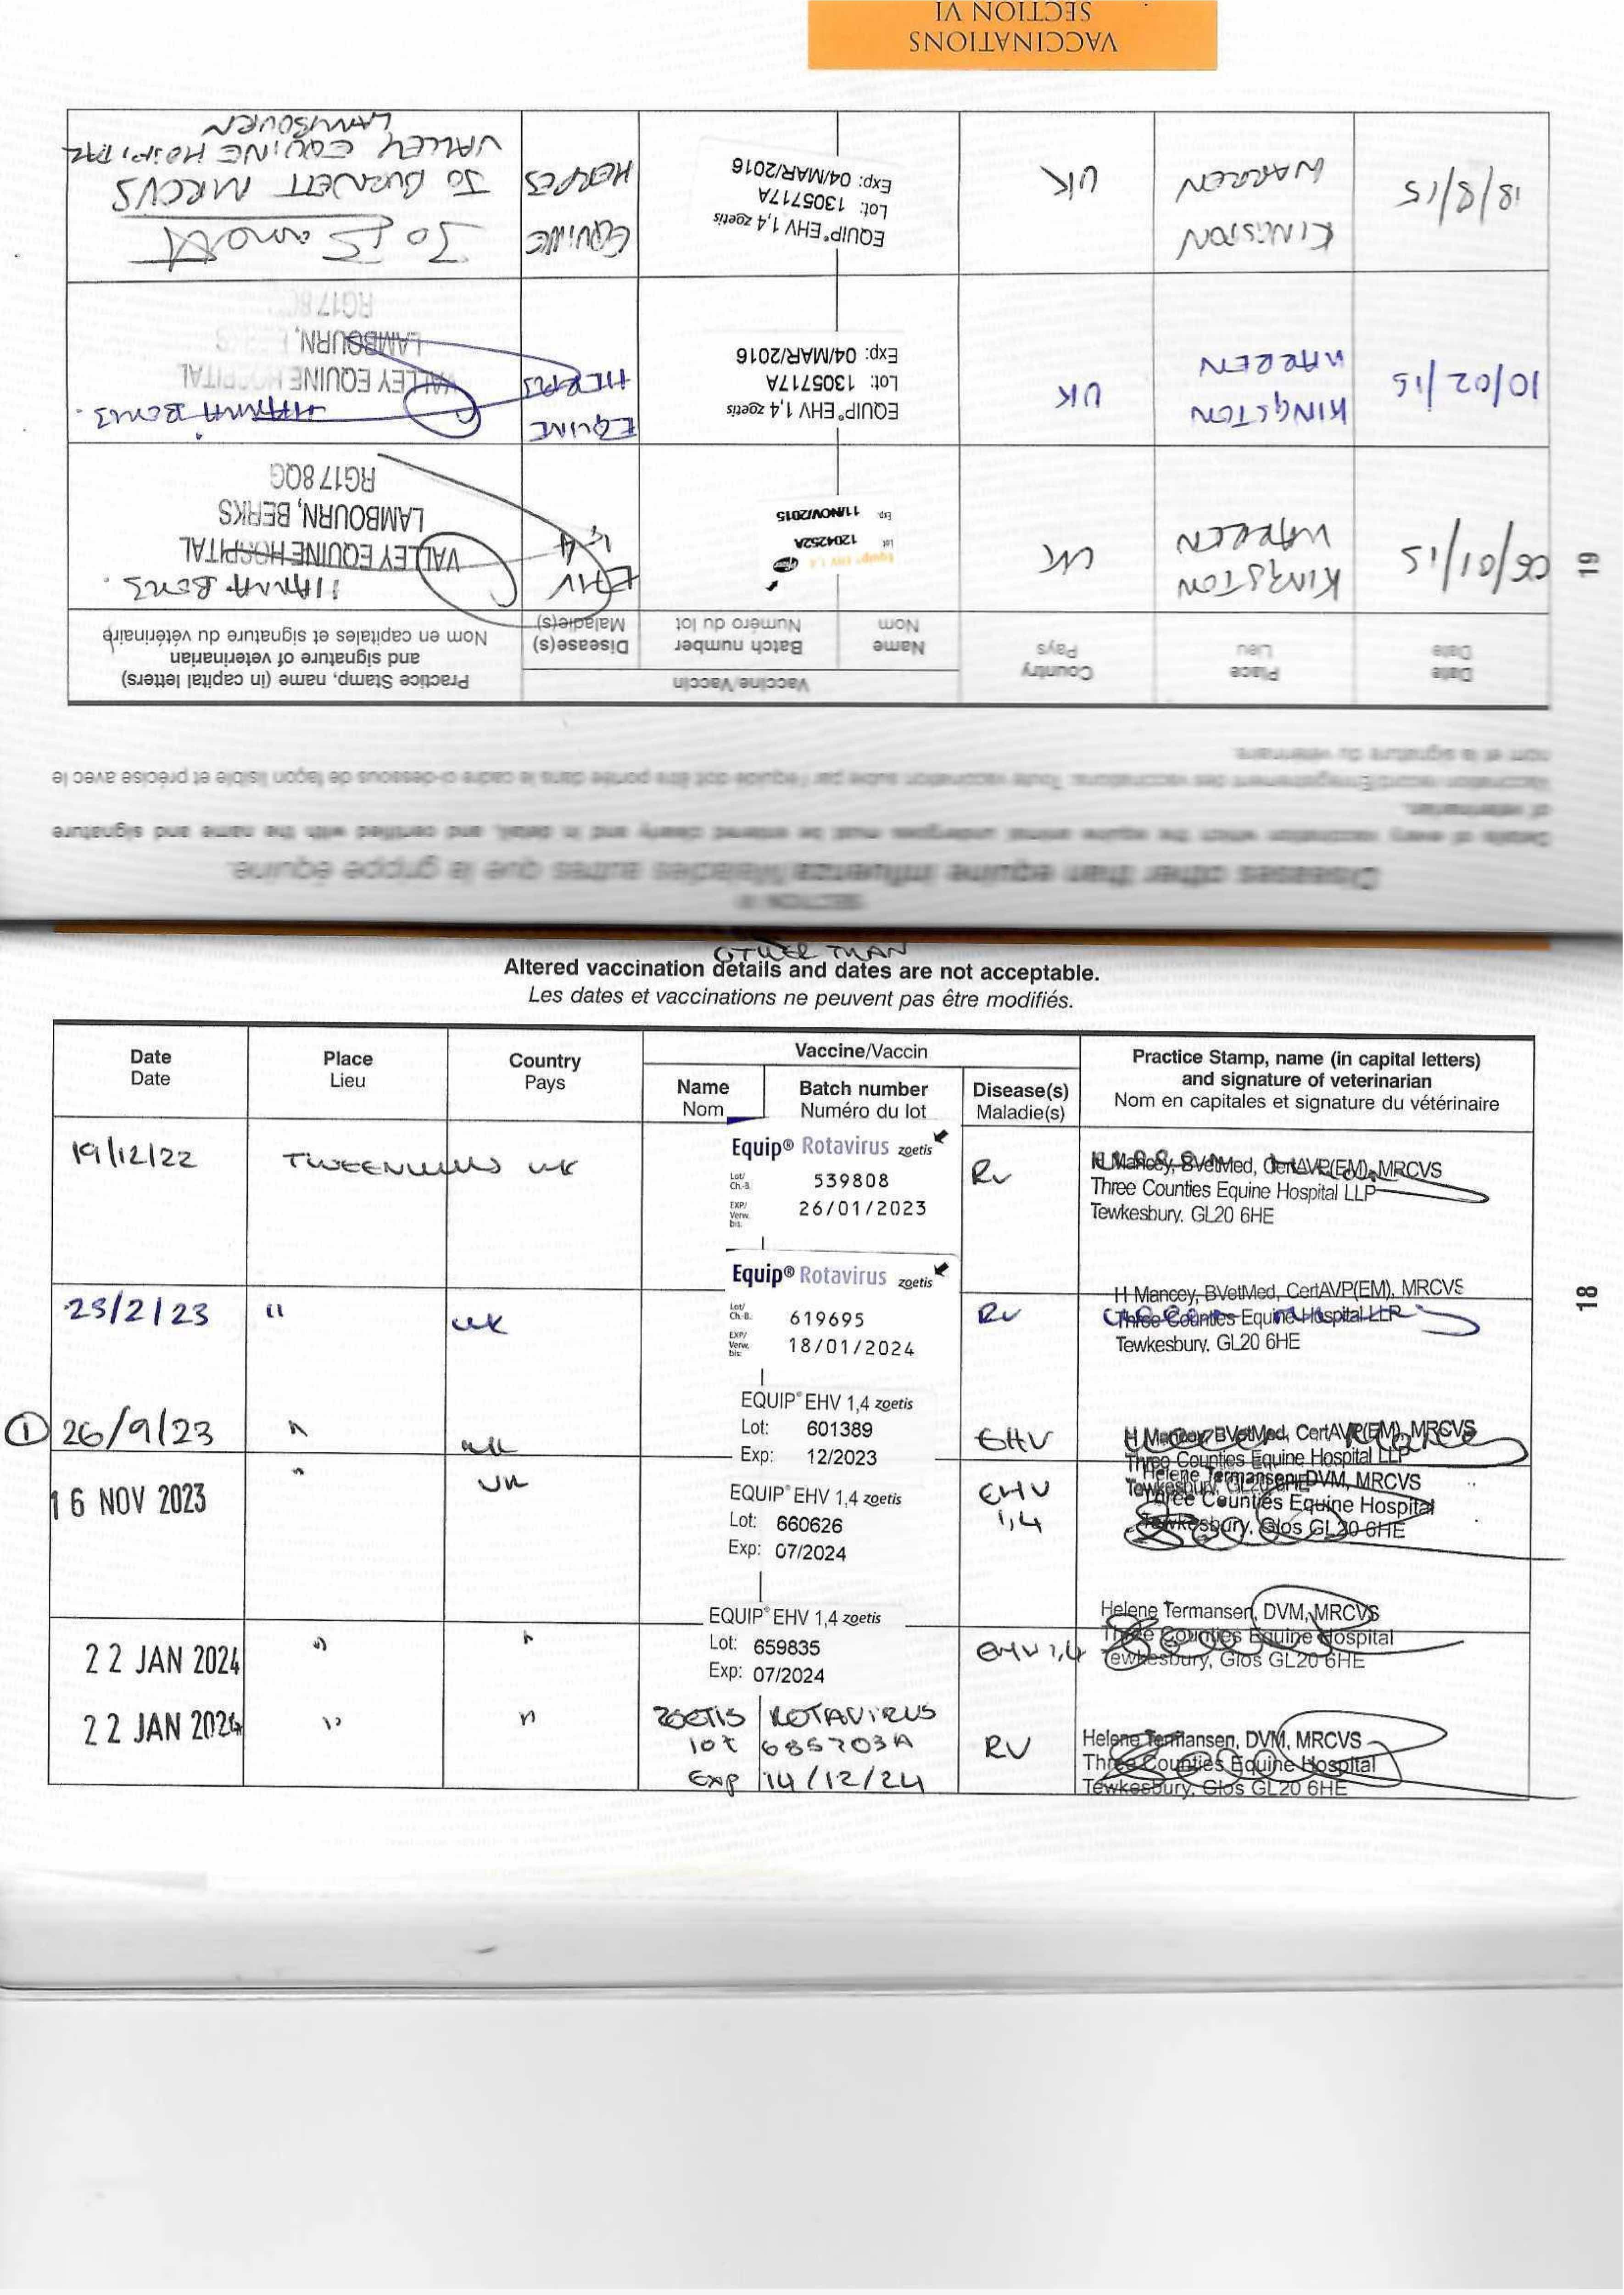 VACCINATIONS
SECTION VI
SECTION VI
Diseases other than equine influenza/Maladies autres que la grippe équine.
Details of every vaccination which the equine animal undergoes must be entered clearly and in detail, and certified with the name and signature
of veterinarian.
Vaccination record/Enregistrement des vaccinations: Toute vaccination subie par l'équidé doit être portée dans le cadre ci-dessous de façon lisible et précise avec le
nom et la signature du vétérinaire.
Date
Date
Place
Lieu
Country
Pays
Vaccine/Vaccin
Name
Nom
Batch number
Numéro du lot
Disease(s)
Maladie(s)
Practice Stamp, name (in capital letters)
and signature of veterinarian
Nom en capitales et signature du vétérinaire
06/01/15
KINGSTON
WARREN
UK
Equip® EHV 1,4
Lot 1204252A
Exp. 11/NOV/2015
EHV
1,4
VALLEY EQUINE HOSPITAL
LAMBOURN, BERKS
RG17 8QG
10/02/15
KINGSTON
WARREN
UK
EQUIP® EHV 1,4 zoetis
Lot: 130571 7A
Exp: 04/MAR/2016
EQUINE
HERPES
VALLEY EQUINE HOSPITAL
LAMBOURN,
18/8/15
KINGSTON
WARREN
UK
EQUIP® EHV 1,4 zoetis
Lot: 1305717A
Exp: 04/MAR/2016
EQUINE
HERPES
JO BURNETT MRCVS
VALLEY EQUINE HOSPITAL
LAMBOURN
19
OTHER THAN
Altered vaccination details and dates are not acceptable.
Les dates et vaccinations ne peuvent pas être modifiés.
Date
Date
Place
Lieu
Country
Pays
Vaccine/Vaccin
Name
Nom
Batch number
Numéro du lot
Disease(s)
Maladie(s)
Practice Stamp, name (in capital letters)
and signature of veterinarian
Nom en capitales et signature du vétérinaire
19/12/22
UK
Equip® Rotavirus zoetis
Lot/
Ch.-B.
539808
EXP/
Verw.
bis:
26/01/2023
RV
H Mancey, BVetMed, CertAVP(EM), MRCVS
Three Counties Equine Hospital LLP
Tewkesbury. GL20 6HE
23/2/23
"
UK
Equip® Rotavirus zoetis
Lot/
Ch.-B.
619695
EXP/
Verw.
bis:
18/01/2024
RV
H Mancey, BVetMed, CertAVP(EM), MRCVS
Three Counties Equine Hospital LLP
Tewkesbury. GL20 6HE
18
① 26/9/23
"
UK
EQUIP® EHV 1,4 zoetis
Lot: 601389
Exp: 12/2023
EHV
H Mancey, BVetMed, CertAVP(EM), MRCVS
Three Counties Equine Hospital LLP
Tewkesbury, GL20 6HE
16 NOV 2023
"
UK
EQUIP® EHV 1,4 zoetis
Lot: 660626
Exp: 07/2024
EHV
1,4
Helene Termansen, DVM, MRCVS
Three Counties Equine Hospital
Tewkesbury, Glos GL20 6HE
22 JAN 2024
"
"
EQUIP® EHV 1,4 zoetis
Lot: 659835
Exp: 07/2024
EHV 1,4
Helene Termansen, DVM, MRCVS
Three Counties Equine Hospital
Tewkesbury, Glos GL20 6HE
22 JAN 2024
"
"
ZOETIS ROTAVIRUS
lot 685703A
Exp 14/12/24
RV
Helene Termansen, DVM, MRCVS
Three Counties Equine Hospital
Tewkesbury, Glos GL20 6HE